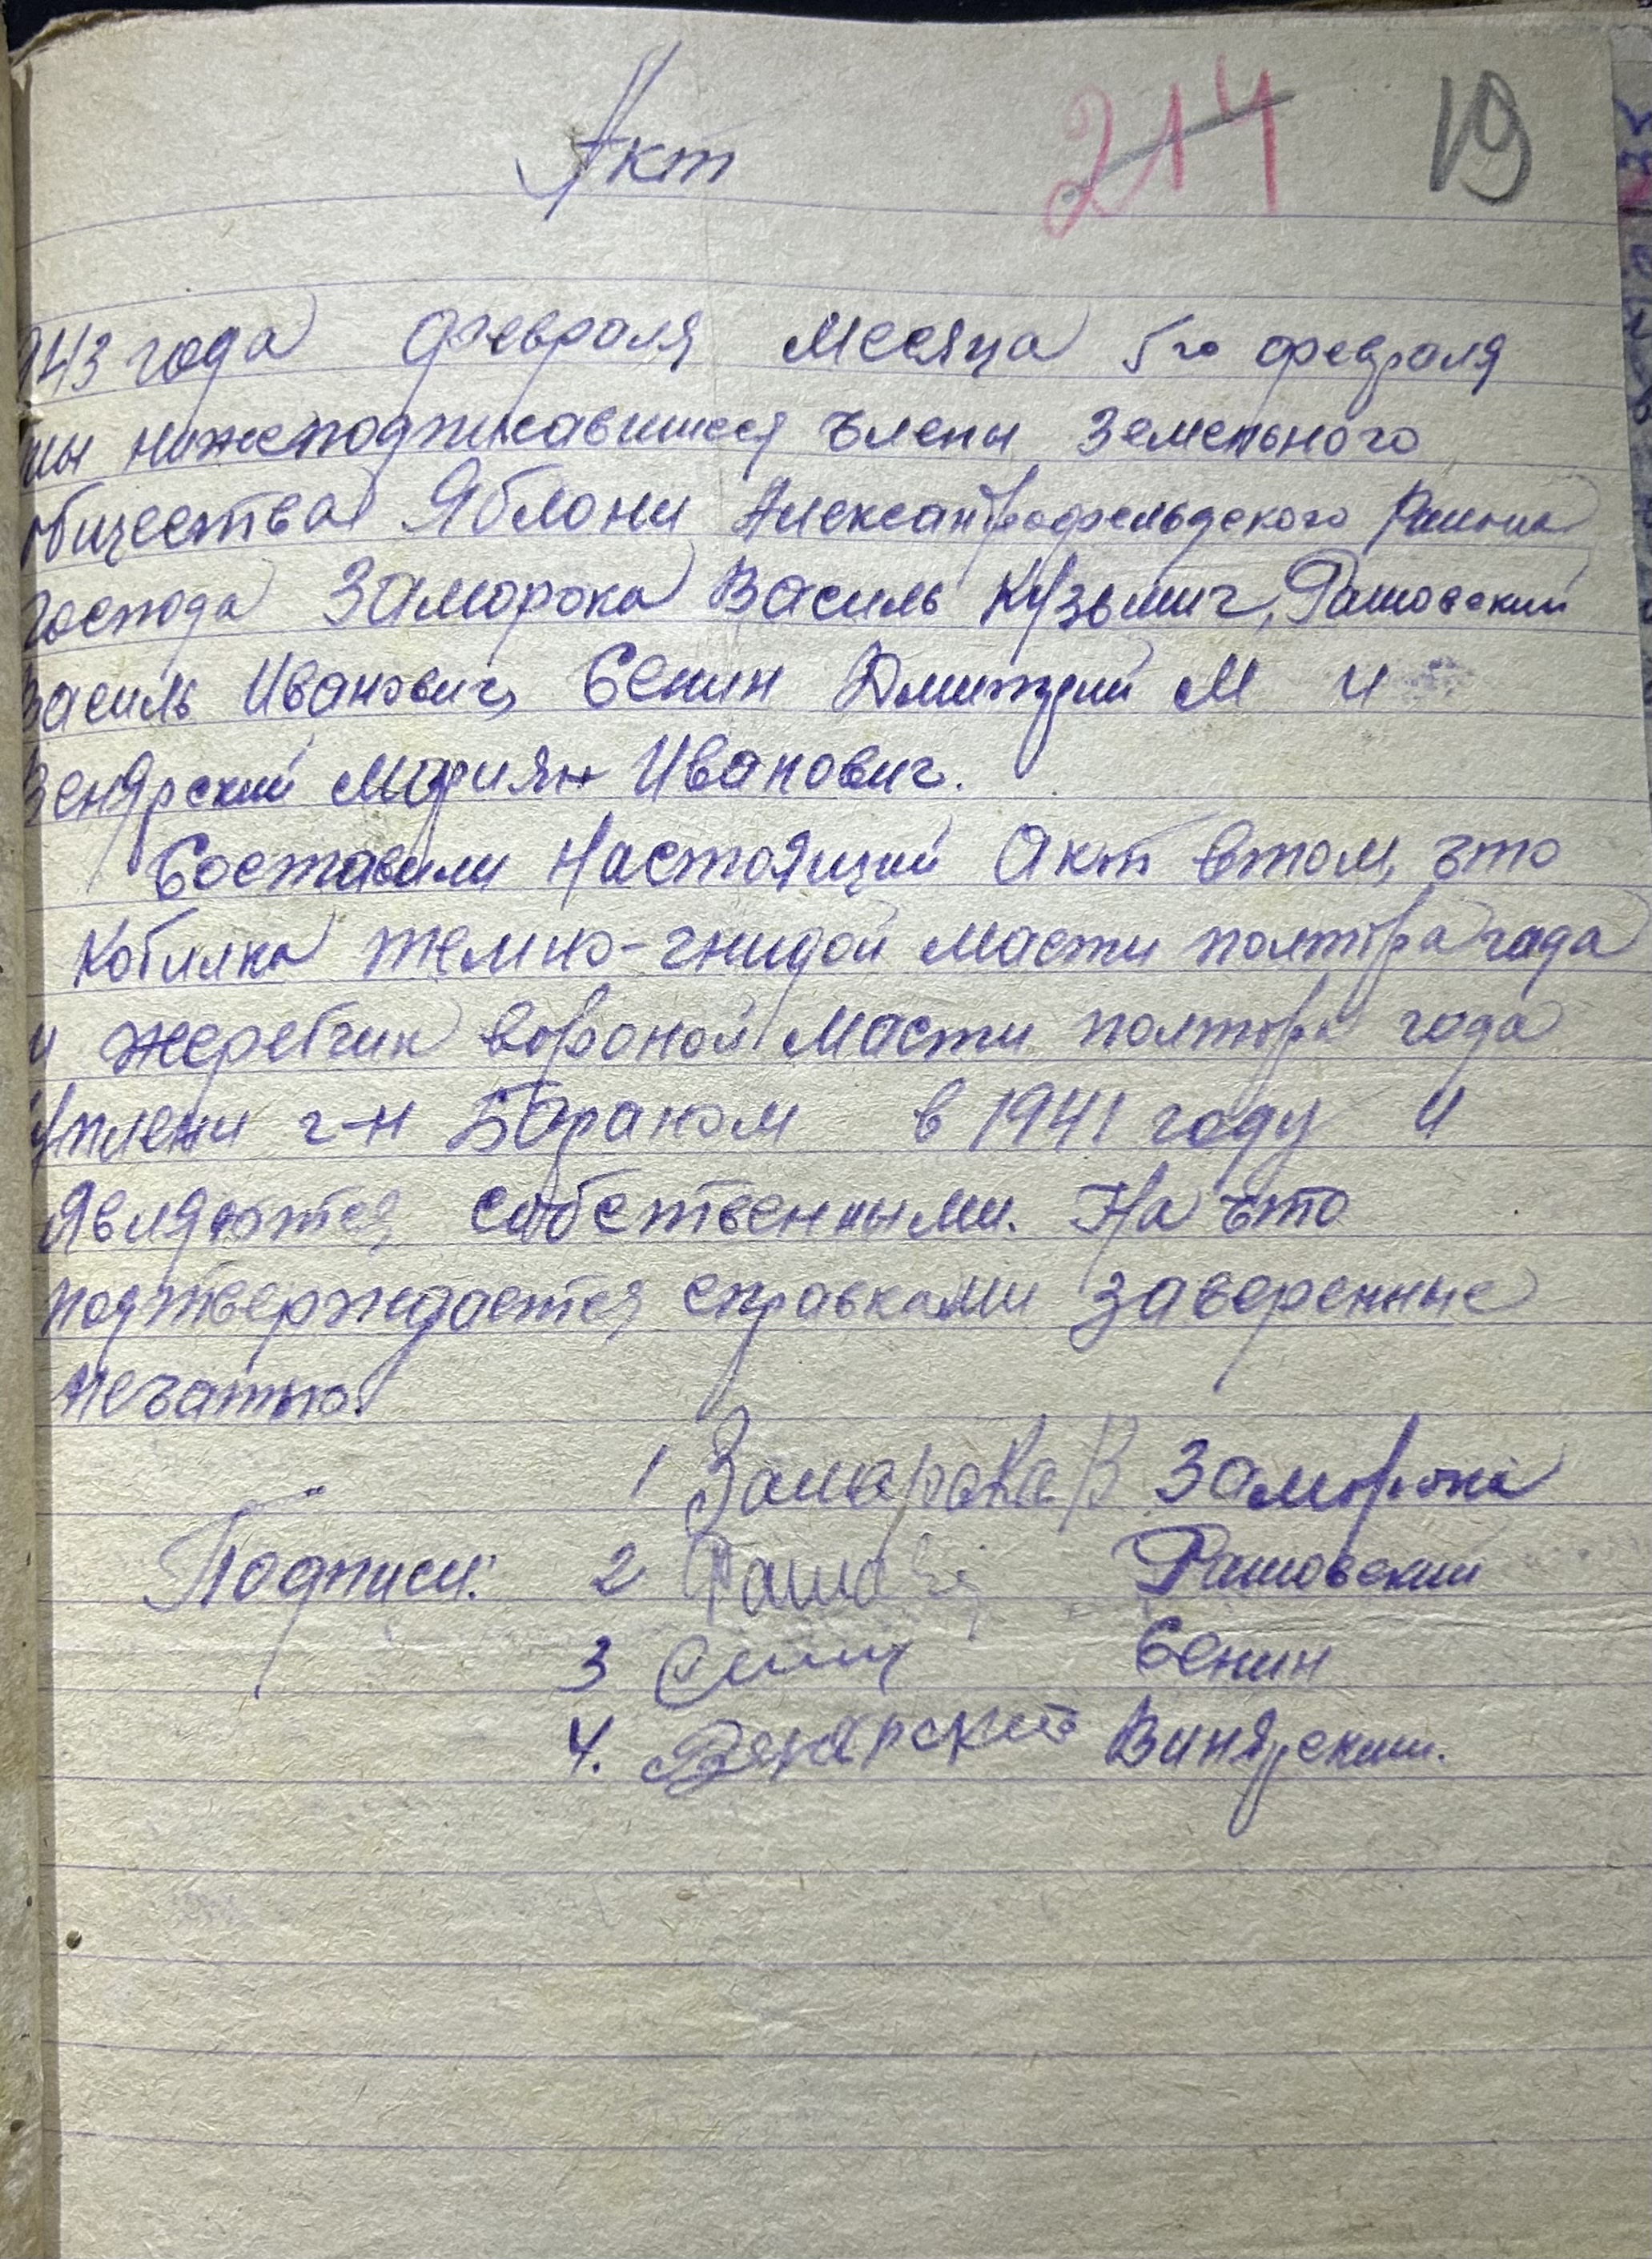 Акт 214 19
943 года февраля месяца 5го февраля
мы нижеподписавшиеся члены Земельного
общества Яблони Александрофельдского Района
господа Заморока Василь Кузьмич, Рашовский
Василь Иванович, Сенин Дмитрий М и
Венярский Мариян Иванович.
Составили настоящий Акт втом, что
кобилка темно-гнидой масти полтора года
и жеребчик вороной масти полтора года
куплени г-н Бараном в 1941 году и
являются собственными. На что
подтверждается справками заверенные
печатью.
1 Замарока В Заморока
Подписи: 2 Рашовский
3 Сенин
4. Венярский Винярский.